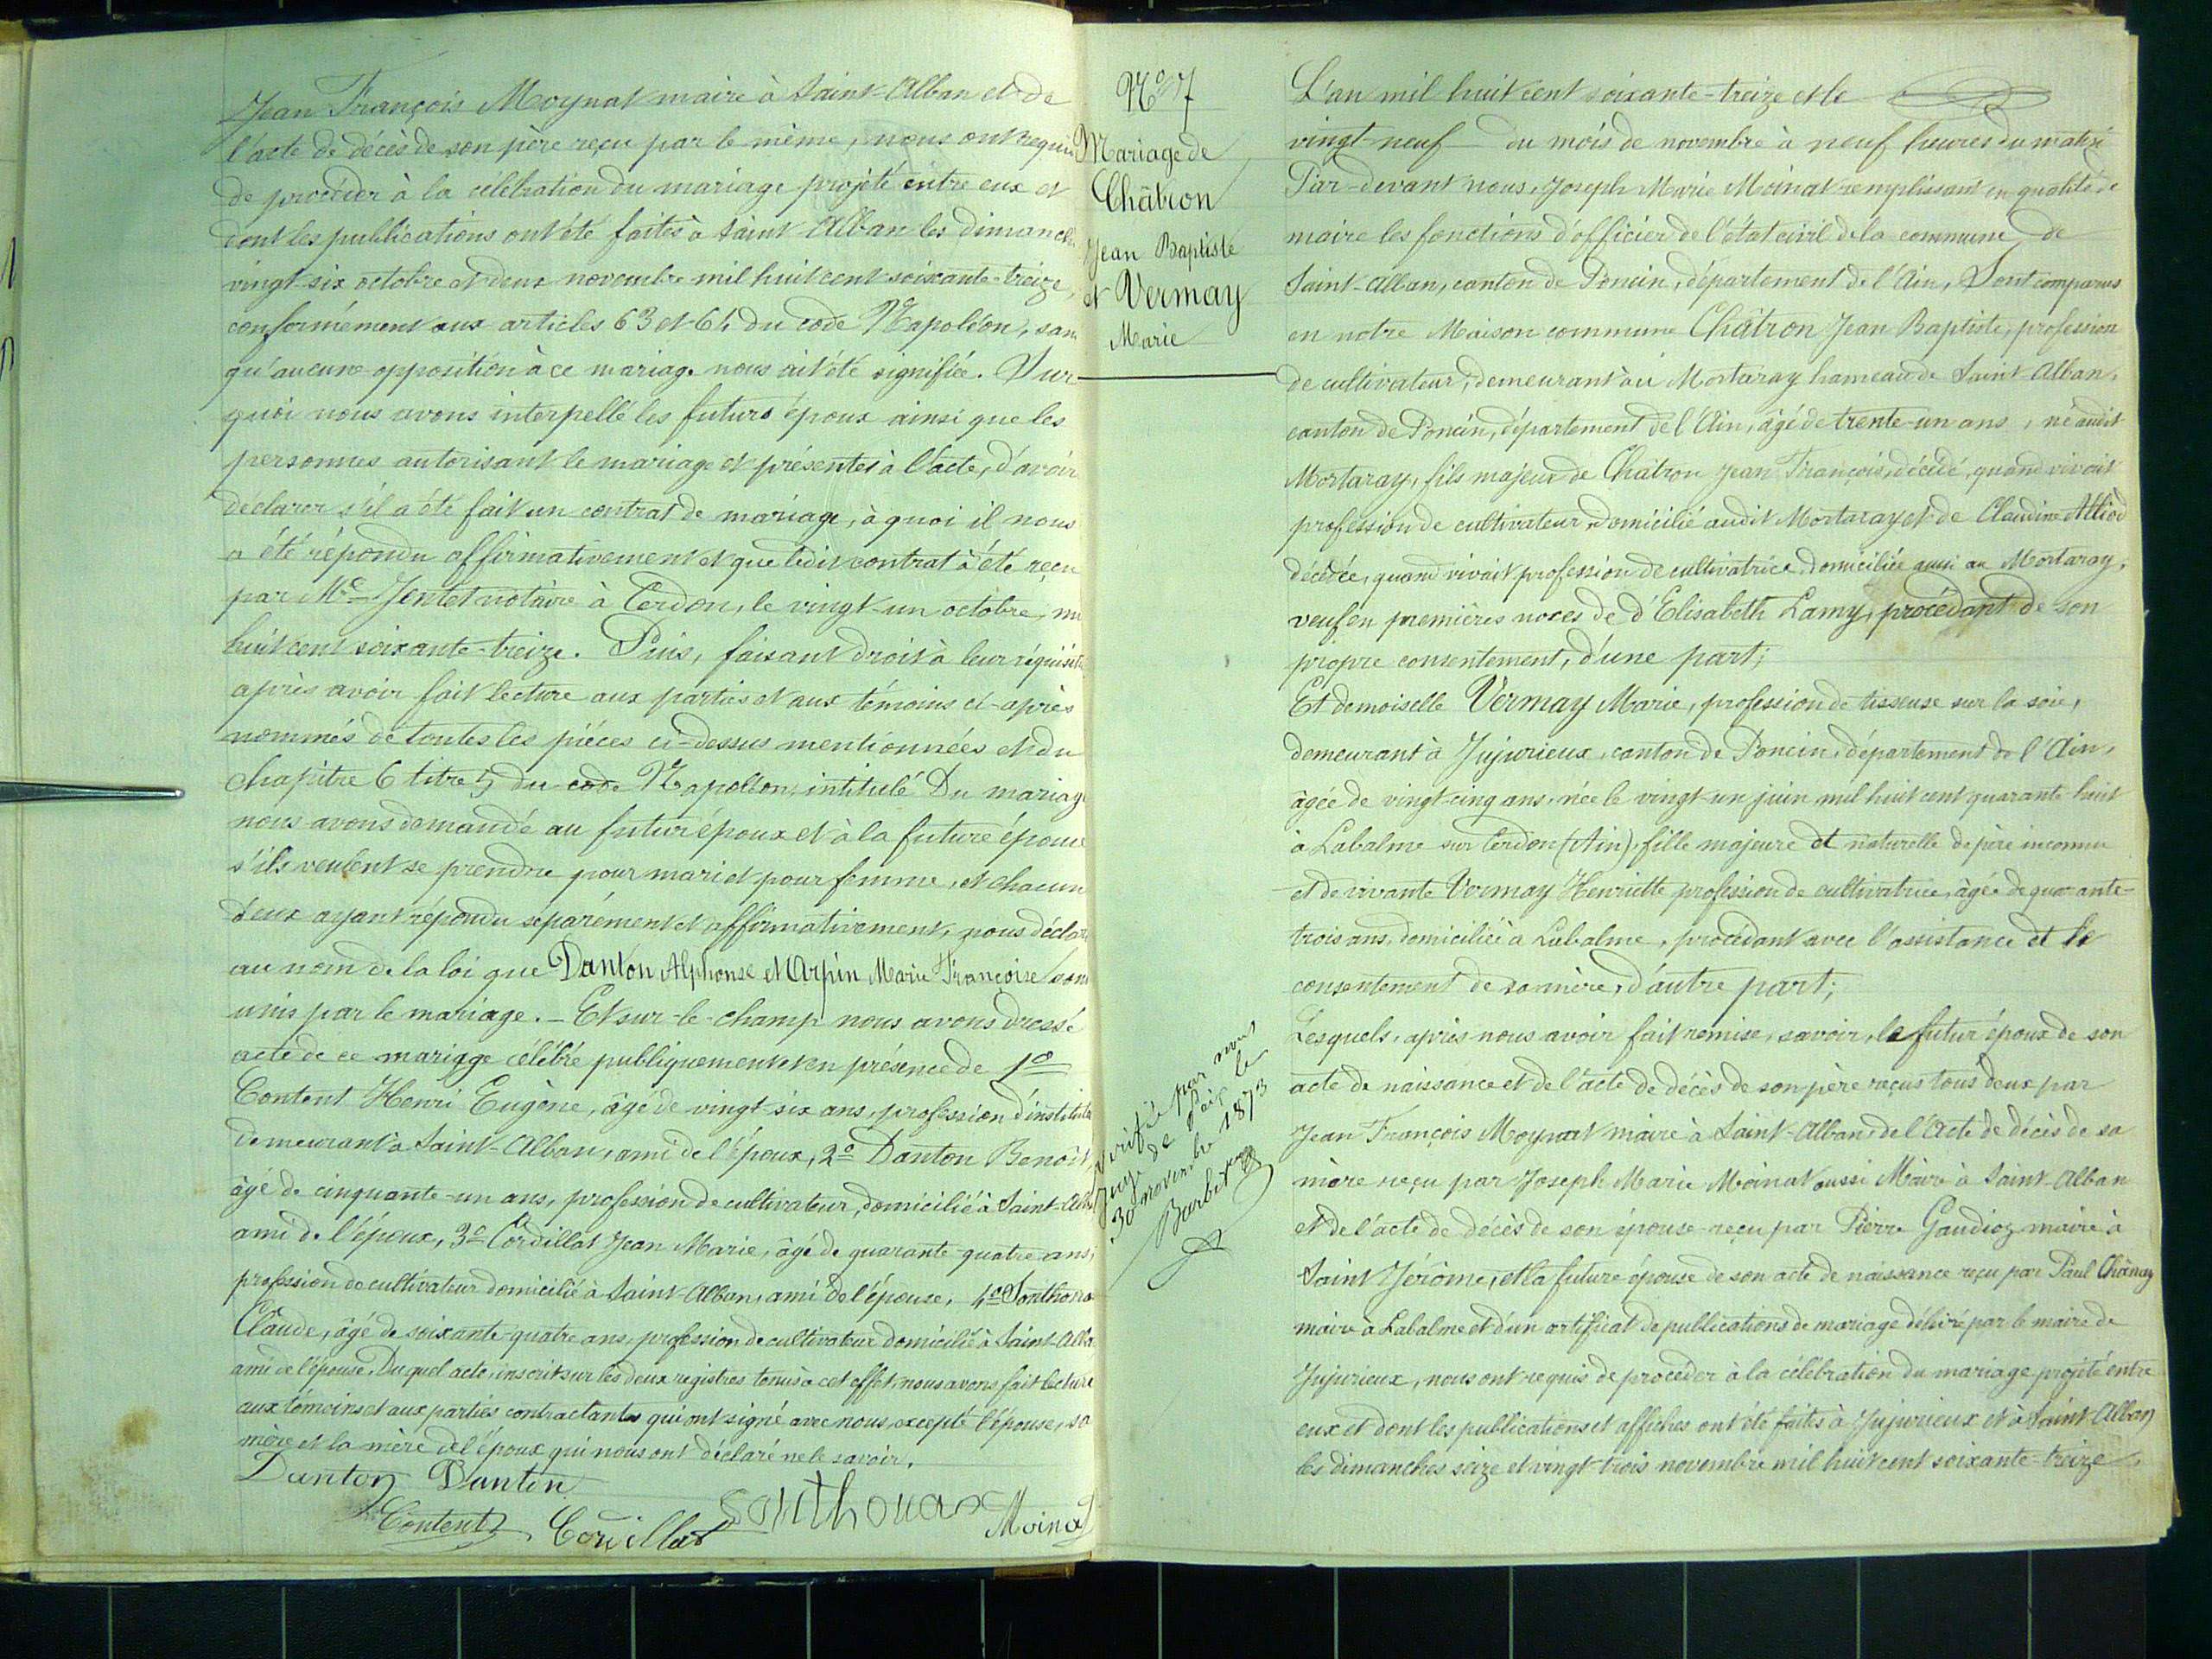 Jean François Moynat maire à Saint-Alban et de
l'acte de décès de son père reçu par le même, nous ont requis
de procéder à la célébration du mariage projeté entre eux et
dont les publications ont été faites à Saint Alban les dimanches
vingt-six octobre et deux novembre mil huit cent soixante-treize,
conformément aux articles 63 et 64 du code Napoléon, sans
qu'aucune opposition à ce mariage nous ait été signifiée. Sur
quoi nous avons interpellé les futurs époux ainsi que les
personnes autorisant le mariage et présentes à l'acte, d'avoir
déclarer s'il a été fait un contrat de mariage, à quoi il nous
a été répondu affirmativement et que ledit contrat a été reçu
par Me Jentet notaire à Cerdon, le vingt-un octobre, mil
huit cent soixante-treize. Puis, faisant droit à leur réquisit
après avoir fait lecture aux parties et aux témoins ci-après
nommés de toutes les pièces ci-dessus mentionnées et du
chapitre 6 titre 5 du code Napoléon, intitulé Du mariage
nous avons demandé au futur époux et à la future épouse
s'ils veulent se prendre pour mari et pour femme, et chacun
d'eux ayant répondu séparément et affirmativement, nous déclar
au nom de la loi que Danton Alphonse et Arpin Marie Françoise sont
unis par le mariage. _ Et sur-le-champ nous avons dressé
acte de ce mariage célébré publiquement et en présence de 1o
Content Henri Eugène, âgé de vingt-six ans, profession d'institut
demeurant à Saint-Alban, ami de l'époux, 2o Danton Benoît,
âgé de cinquante-un ans, profession de cultivateur, domicilié à Saint-Alb
ami de l'époux, 3o Cordillat Jean Marie, âgé de quarante-quatre ans,
profession de cultivateur domicilié à Saint-Alban, ami de l'épouse, 4o Sonthona
Claude, âgé de soixante-quatre ans, profession de cultivateur domicilié à Saint-Alba
ami de l'épouse. Duquel acte, inscrit sur les deux registres tenus à cet effet, nous avons fait lecture
aux témoins et aux parties contractantes qui ont signé avec nous, excepté l'épouse, sa
mère et la mère de l'époux qui nous ont déclaré ne le savoir.
Danton Danton
Content Cordillat Sonthonax Moinat
No 7
Mariage de
Châtron
Jean Baptiste
et Vermay
Marie
Vérifié par nous
Juge de Paix le
30 novembre 1873
Barbet
L'an mil huit cent soixante-treize et le
vingt-neuf du mois de novembre à neuf heures du matin
Par-devant nous, Joseph Marie Moinat remplissant en qualité de
maire les fonctions d'officier de l'état civil de la commune de
Saint-Alban, canton de Poncin, département de l'Ain, Sont comparus
en notre Maison commune Châtron Jean Baptiste, profession
de cultivateur, demeurant au Mortaray hameau de Saint-Alban,
canton de Poncin, département de l'Ain, âgé de trente-un ans, né audit
Mortaray, fils majeur de Châtron Jean François, décédé, quand vivait
profession de cultivateur, domicilié audit Mortaray et de Claudine Alliod
décédée, quand vivait profession de cultivatrice, domiciliée aussi au Mortaray,
veuf en premières noces de d'Elisabeth Lamy, procédant de son
propre consentement, d'une part;
Et demoiselle Vermay Marie, profession de tisseuse sur la soie,
demeurant à Jujurieux, canton de Poncin, département de l'Ain,
âgée de vingt-cinq ans, née le vingt-un juin mil huit cent quarante huit
à Labalme sur Cerdon (Ain), fille majeure et naturelle de père inconnu
et de vivante Vermay Henriette profession de cultivatrice, âgée de quarante-
trois ans, domiciliée à Labalme, procédant avec l'assistance et le
consentement de sa mère, d'autre part;
Lesquels, après nous avoir fait remise, savoir, le futur époux de son
acte de naissance et de l'acte de décès de son père reçus tous deux par
Jean François Moynat maire à Saint-Alban, de l'acte de décès de sa
mère reçu par Joseph Marie Moinat aussi Maire à Saint-Alban
et de l'acte de décès de son épouse reçu par Pierre Gaudioz maire à
Saint Jérôme, et la future épouse de son acte de naissance reçu par Paul Chanay
maire à Labalme et d'un certificat de publications de mariage délivré par le maire de
Jujurieux, nous ont requis de procéder à la célébration du mariage projeté entre
eux et dont les publications et affiches ont été faites à Jujurieux et à Saint-Alban
les dimanches seize et vingt-trois novembre mil huit cent soixante-treize,